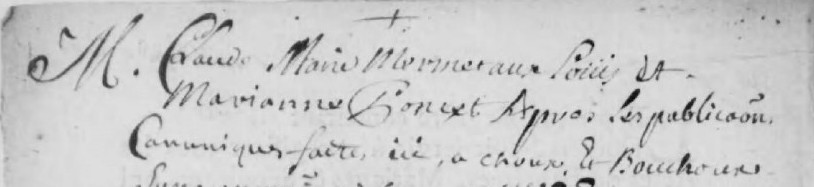 M. Claude Marie Mermetaux Louis et
Marianne Poncet Apres les publicaõns
Canoniques faites ici, a choux, Et Bouchoux